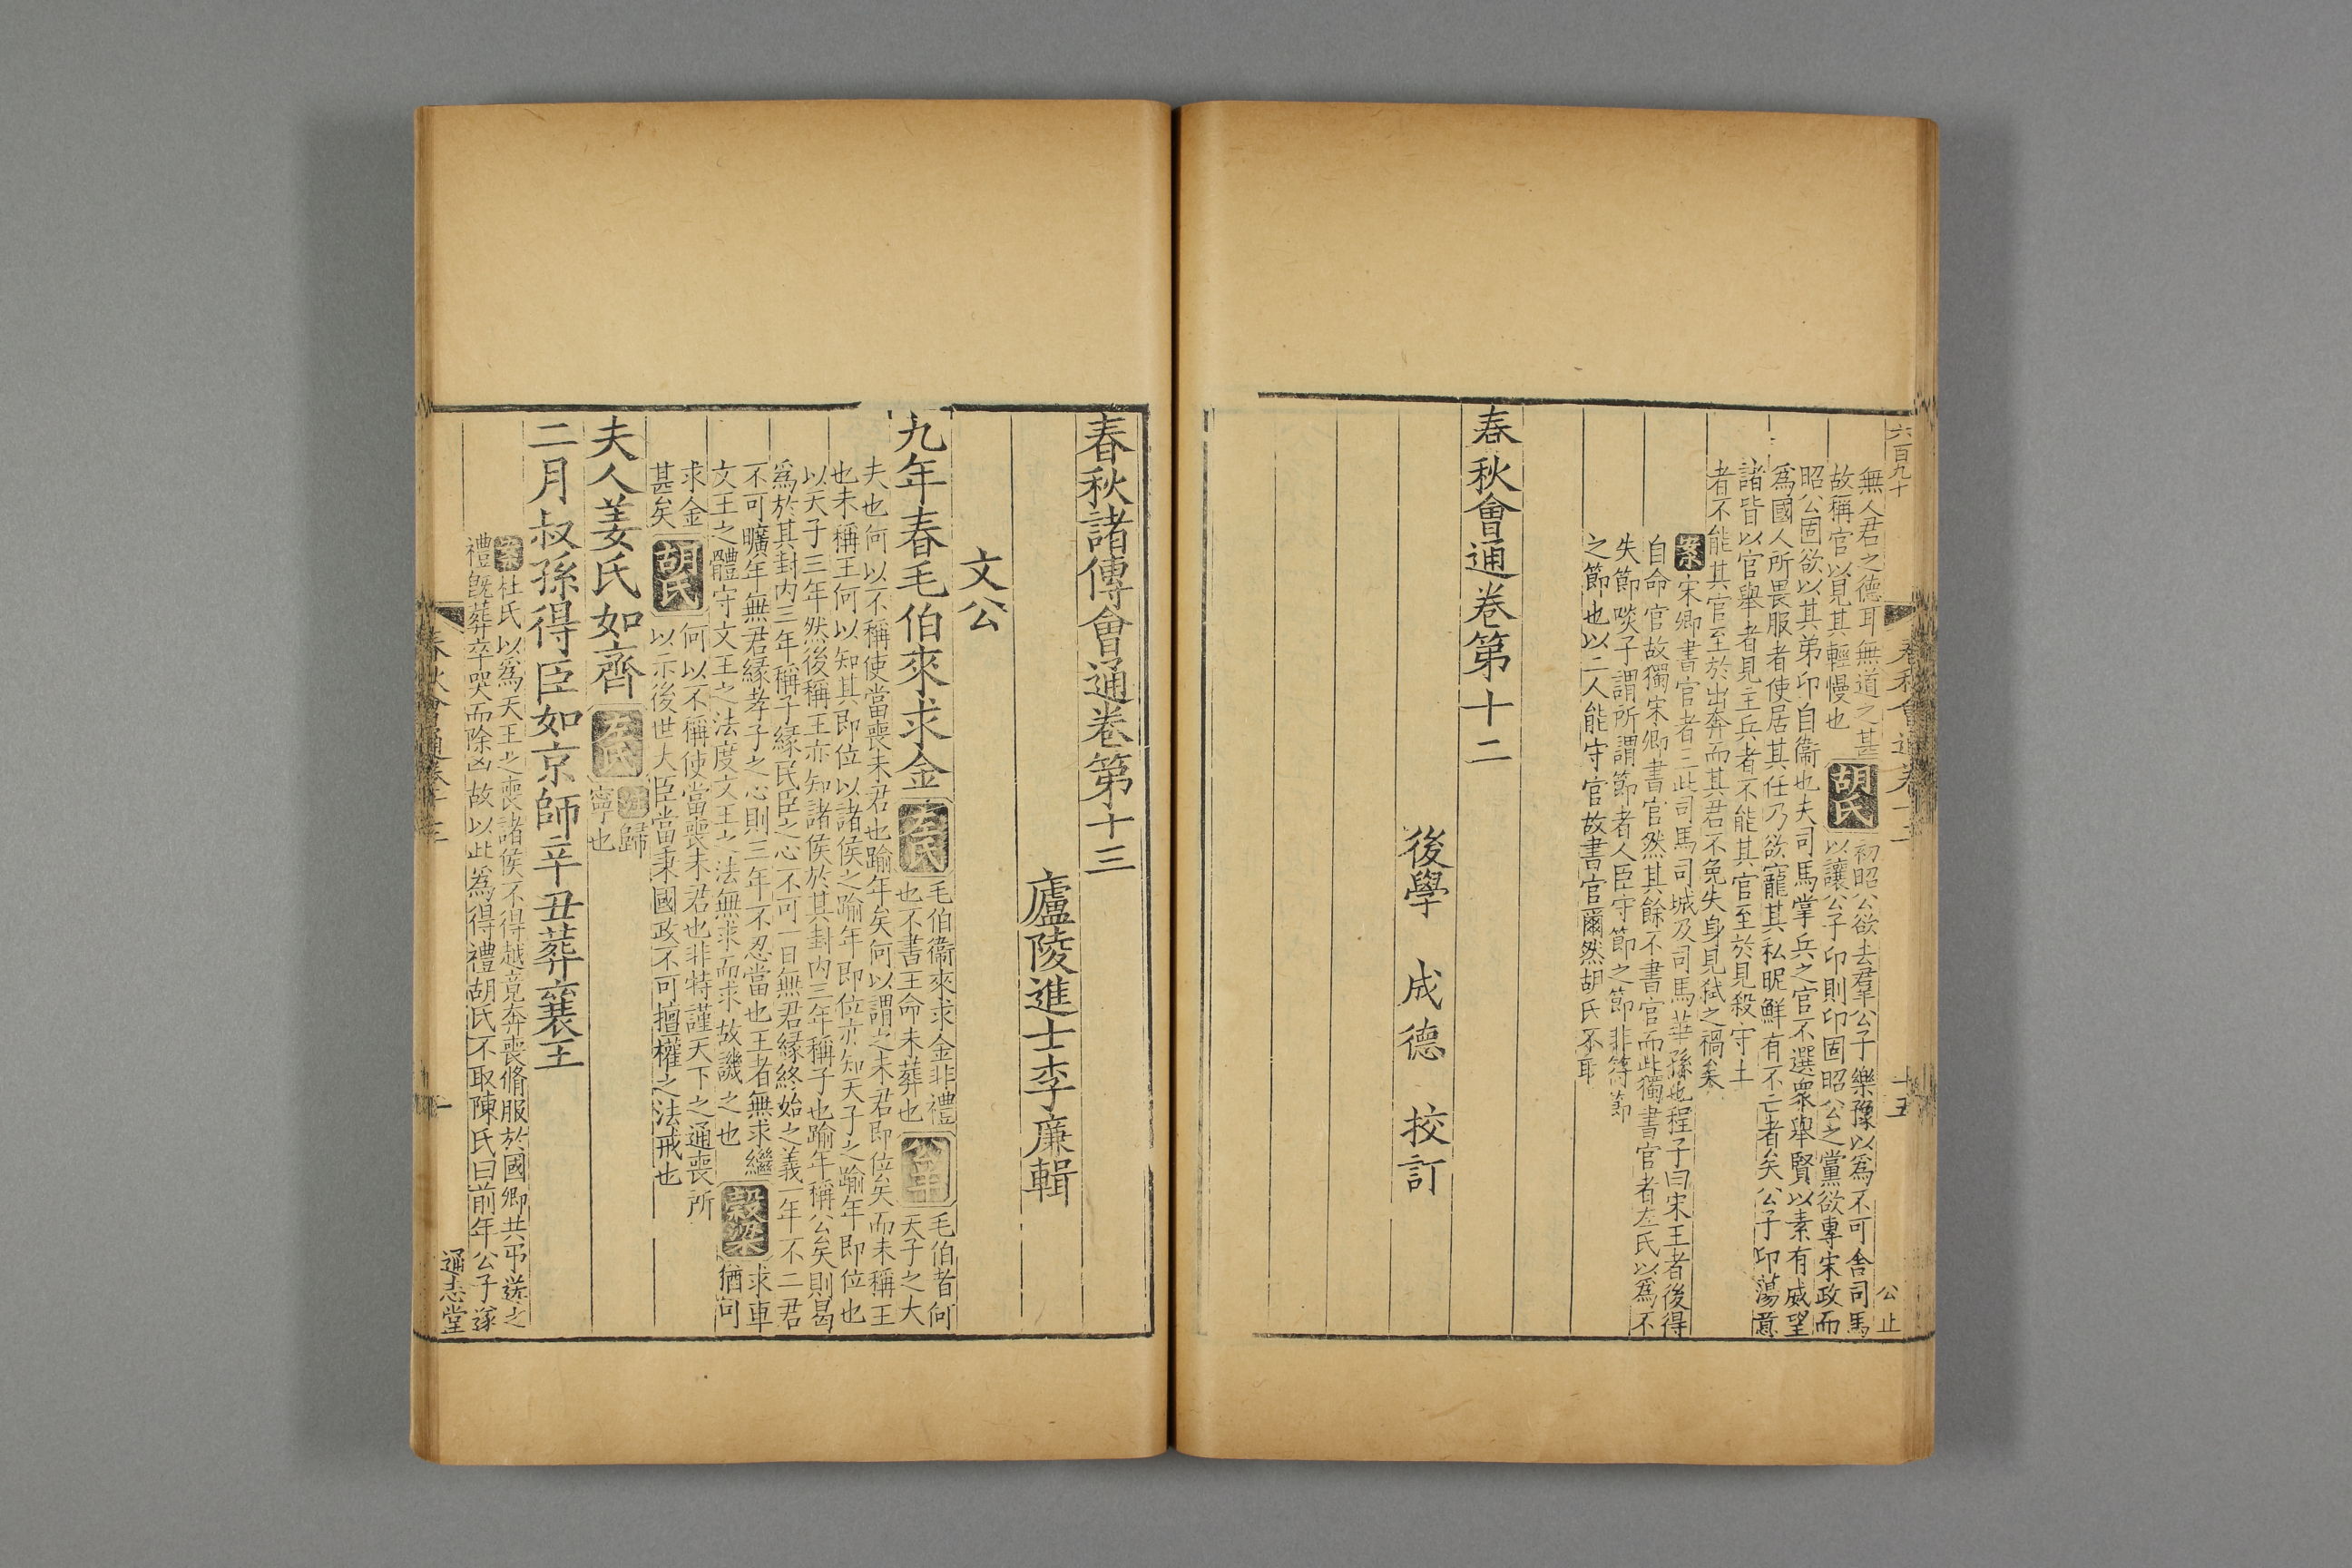 六百九十
春秋會通卷十二
十五
公止
無人君之德耳無道之甚
故稱官以見其輕慢也
胡氏
初昭公欲去羣公子樂豫以爲不可舍司馬
以讓公子卬則卬固昭公之黨欲專宋政而
昭公固欲以其弟卬自衞也夫司馬掌兵之官不選衆舉賢以素有威望
爲國人所畏服者使居其任乃欲寵其私昵鮮有不亡者矣公子卬蕩意
諸皆以官舉者見主兵者不能其官至於見殺守土
者不能其官至於出奔而其君不免失身見弑之禍矣
案
宋卿書官者三此司馬司城及司馬華孫也程子曰宋王者後得
自命官故獨宋卿書官然其餘不書官而此獨書官者左氏以爲不
失節啖子謂所謂節者人臣守節之節非符節
之節也以二人能守官故書官爾然胡氏不取
春秋會通卷第十二
後學 成德 校訂
春秋諸傳會通卷第十三
廬陵進士李廉輯
文公
九年春毛伯來求金
左氏
毛伯衞來求金非禮
也不書王命未葬也
公羊
毛伯者何
天子之大
夫也何以不稱使當喪未君也踰年矣何以謂之未君即位矣而未稱王
也未稱王何以知其即位以諸侯之踰年即位亦知天子之踰年即位也
以天子三年然後稱王亦知諸侯於其封內三年稱子也踰年稱公矣則曷
爲於其封內三年稱子緣民臣之心不可一日無君緣終始之義一年不二君
不可曠年無君緣孝子之心則三年不忍當也王者無求繼
文王之體守文王之法度文王之法無求而求故譏之也
穀梁
求車
猶可
求金
甚矣
胡氏
何以不稱使當喪未君也非特謹天下之通喪所
以示後世大臣當秉國政不可擅權之法戒也
夫人姜氏如齊
左氏
註歸
寧也
二月叔孫得臣如京師辛丑葬襄王
案
杜氏以爲天王之喪諸侯不得越竟奔喪脩服於國卿共弔送之
禮旣葬卒哭而除凶故以此爲得禮胡氏不取陳氏曰前年公子遂
春秋會通卷十三
一
通志堂